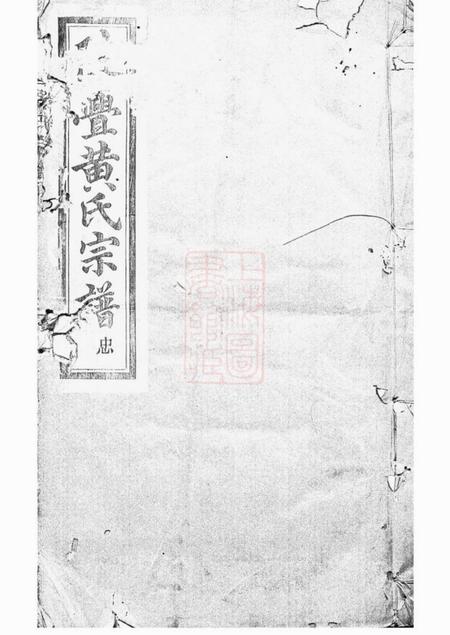 豊黄氏宗譜
忠
上海圖書館藏